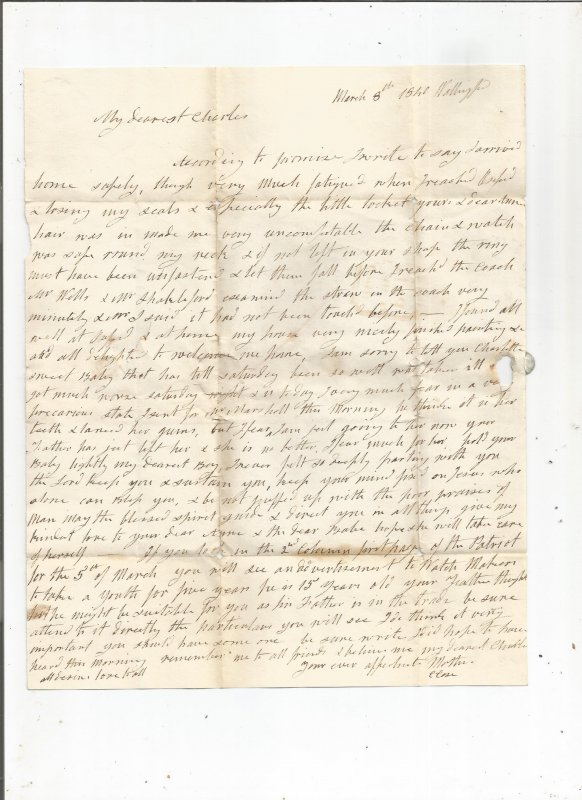 March 8th 1840
My dearest Charles
According to promise I write to say I arrived
home safely, though very much fatigued when I reached Oxford
& losing my seals & especially the little locket yours & dear
hair was in made me very uncomfortable the Chain & watch
was safe round my neck & if not left in your shop the ring
must have been unfastened & let them fall before I reached the Coach
Mr Wells & Mr Shackleford examined the straw in the coach very
minutely & I said it had not been touched before — I found all
well at & at home my house very nicely finished painting &c
and all delighted to welcome me home, I am sorry to tell you Charlotte
sweet Baby that has till saturday been so well was taken ill
got much worse saturday night & is today I very much fear in a very
precarious state I sent for Mr Marshall this Morning he thinks it is her
teeth & lanced her gums, but I fear, I am just going to her now your
Father has just left her & she is no better I fear much for her hold your
Baby lightly my dearest Boy, I never felt so deeply parting with you
the Lord keep you & sustain you, keep your mind fixed on Jesus who
alone can keep you, & be not puffed up with the poor praises of
Man may the blessed spirit guide & direct you in all things give my
kindest love to your dear & the dear Babe hope she will take care
of herself If you look in the 2nd Column first page of the Patriot
for the 5th of March you will see an advertisement to Watch Makers
to take a youth for five years he is 15 Years old your Father thought
he might be suitable for you as his Father is in the trade be sure
attend to it directly the particulars you will see I do think it very
important you should have some one be sure write I did hope to have
heard this Morning remember me to all friends & believe me my dearest Charles
all desire love to all Your ever affectionate Mother